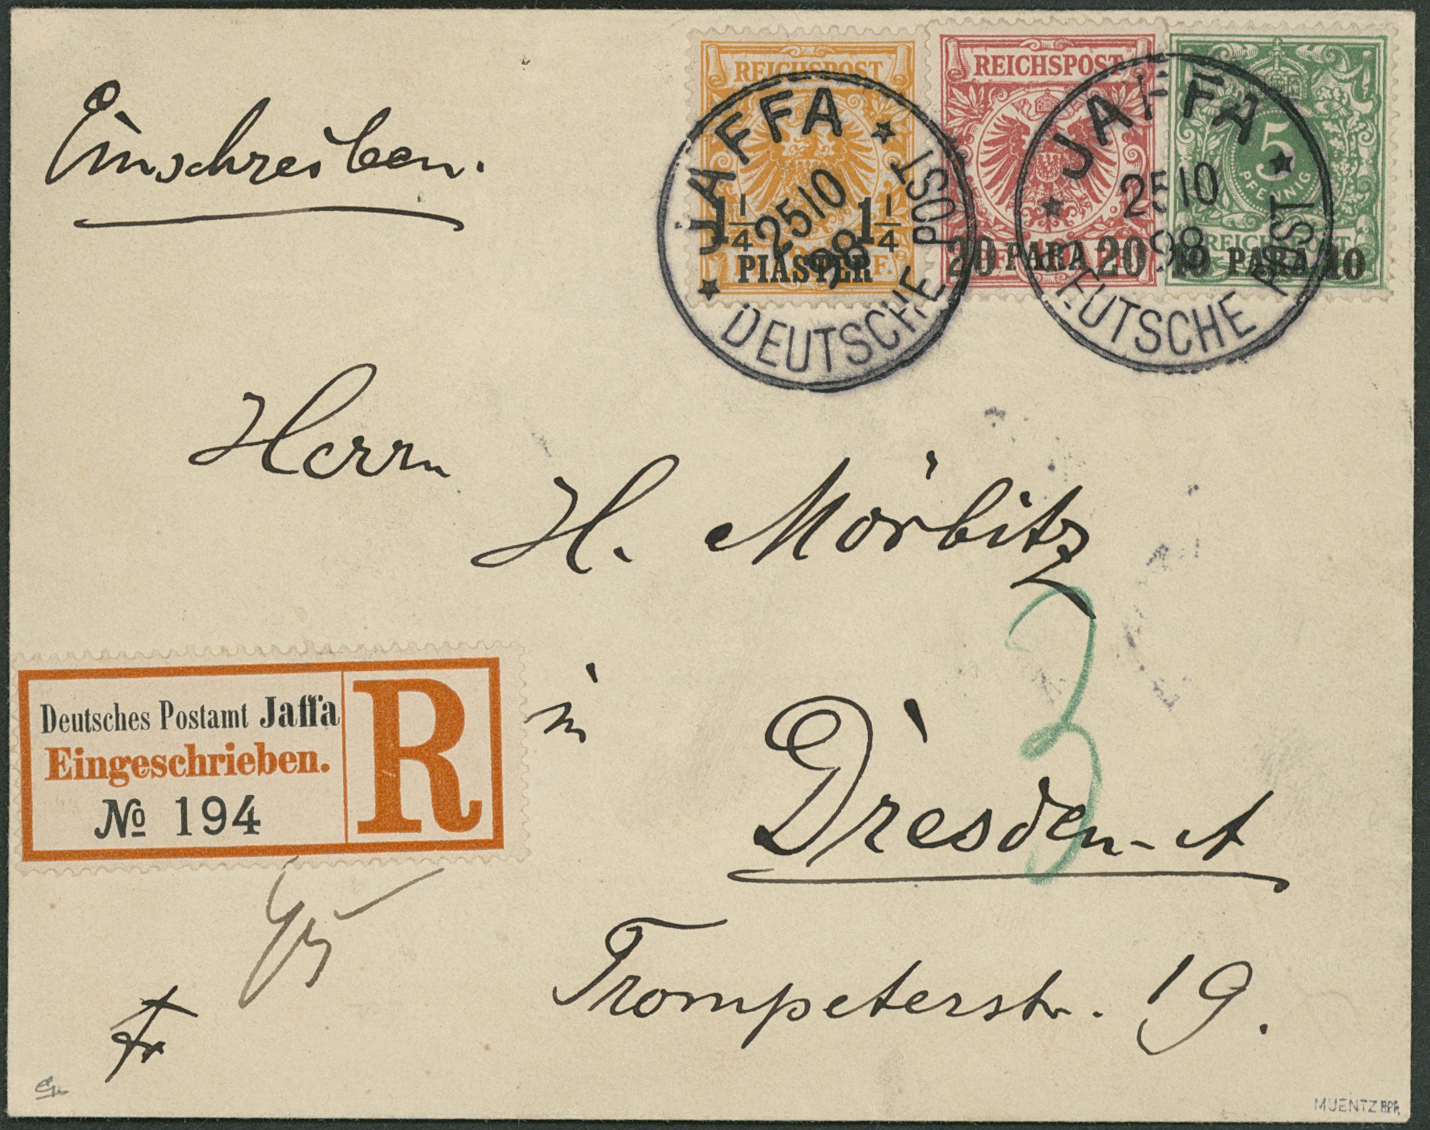 Einschreiben.
REICHSPOST
1 1/4 1 1/4
PIASTER
JAFFA
25 10
98
DEUTSCHE POST
REICHSPOST
20 PARA 20
5
PFENNIG
REICHSPOST
10 PARA 10
JAFFA
25 10
98
DEUTSCHE POST
Herrn
H. Mörbitz
in
Dresden-A
Trompeterstr. 19.
3
Deutsches Postamt Jaffa
Eingeschrieben.
№ 194
R
fr
MUENTZ BPP.